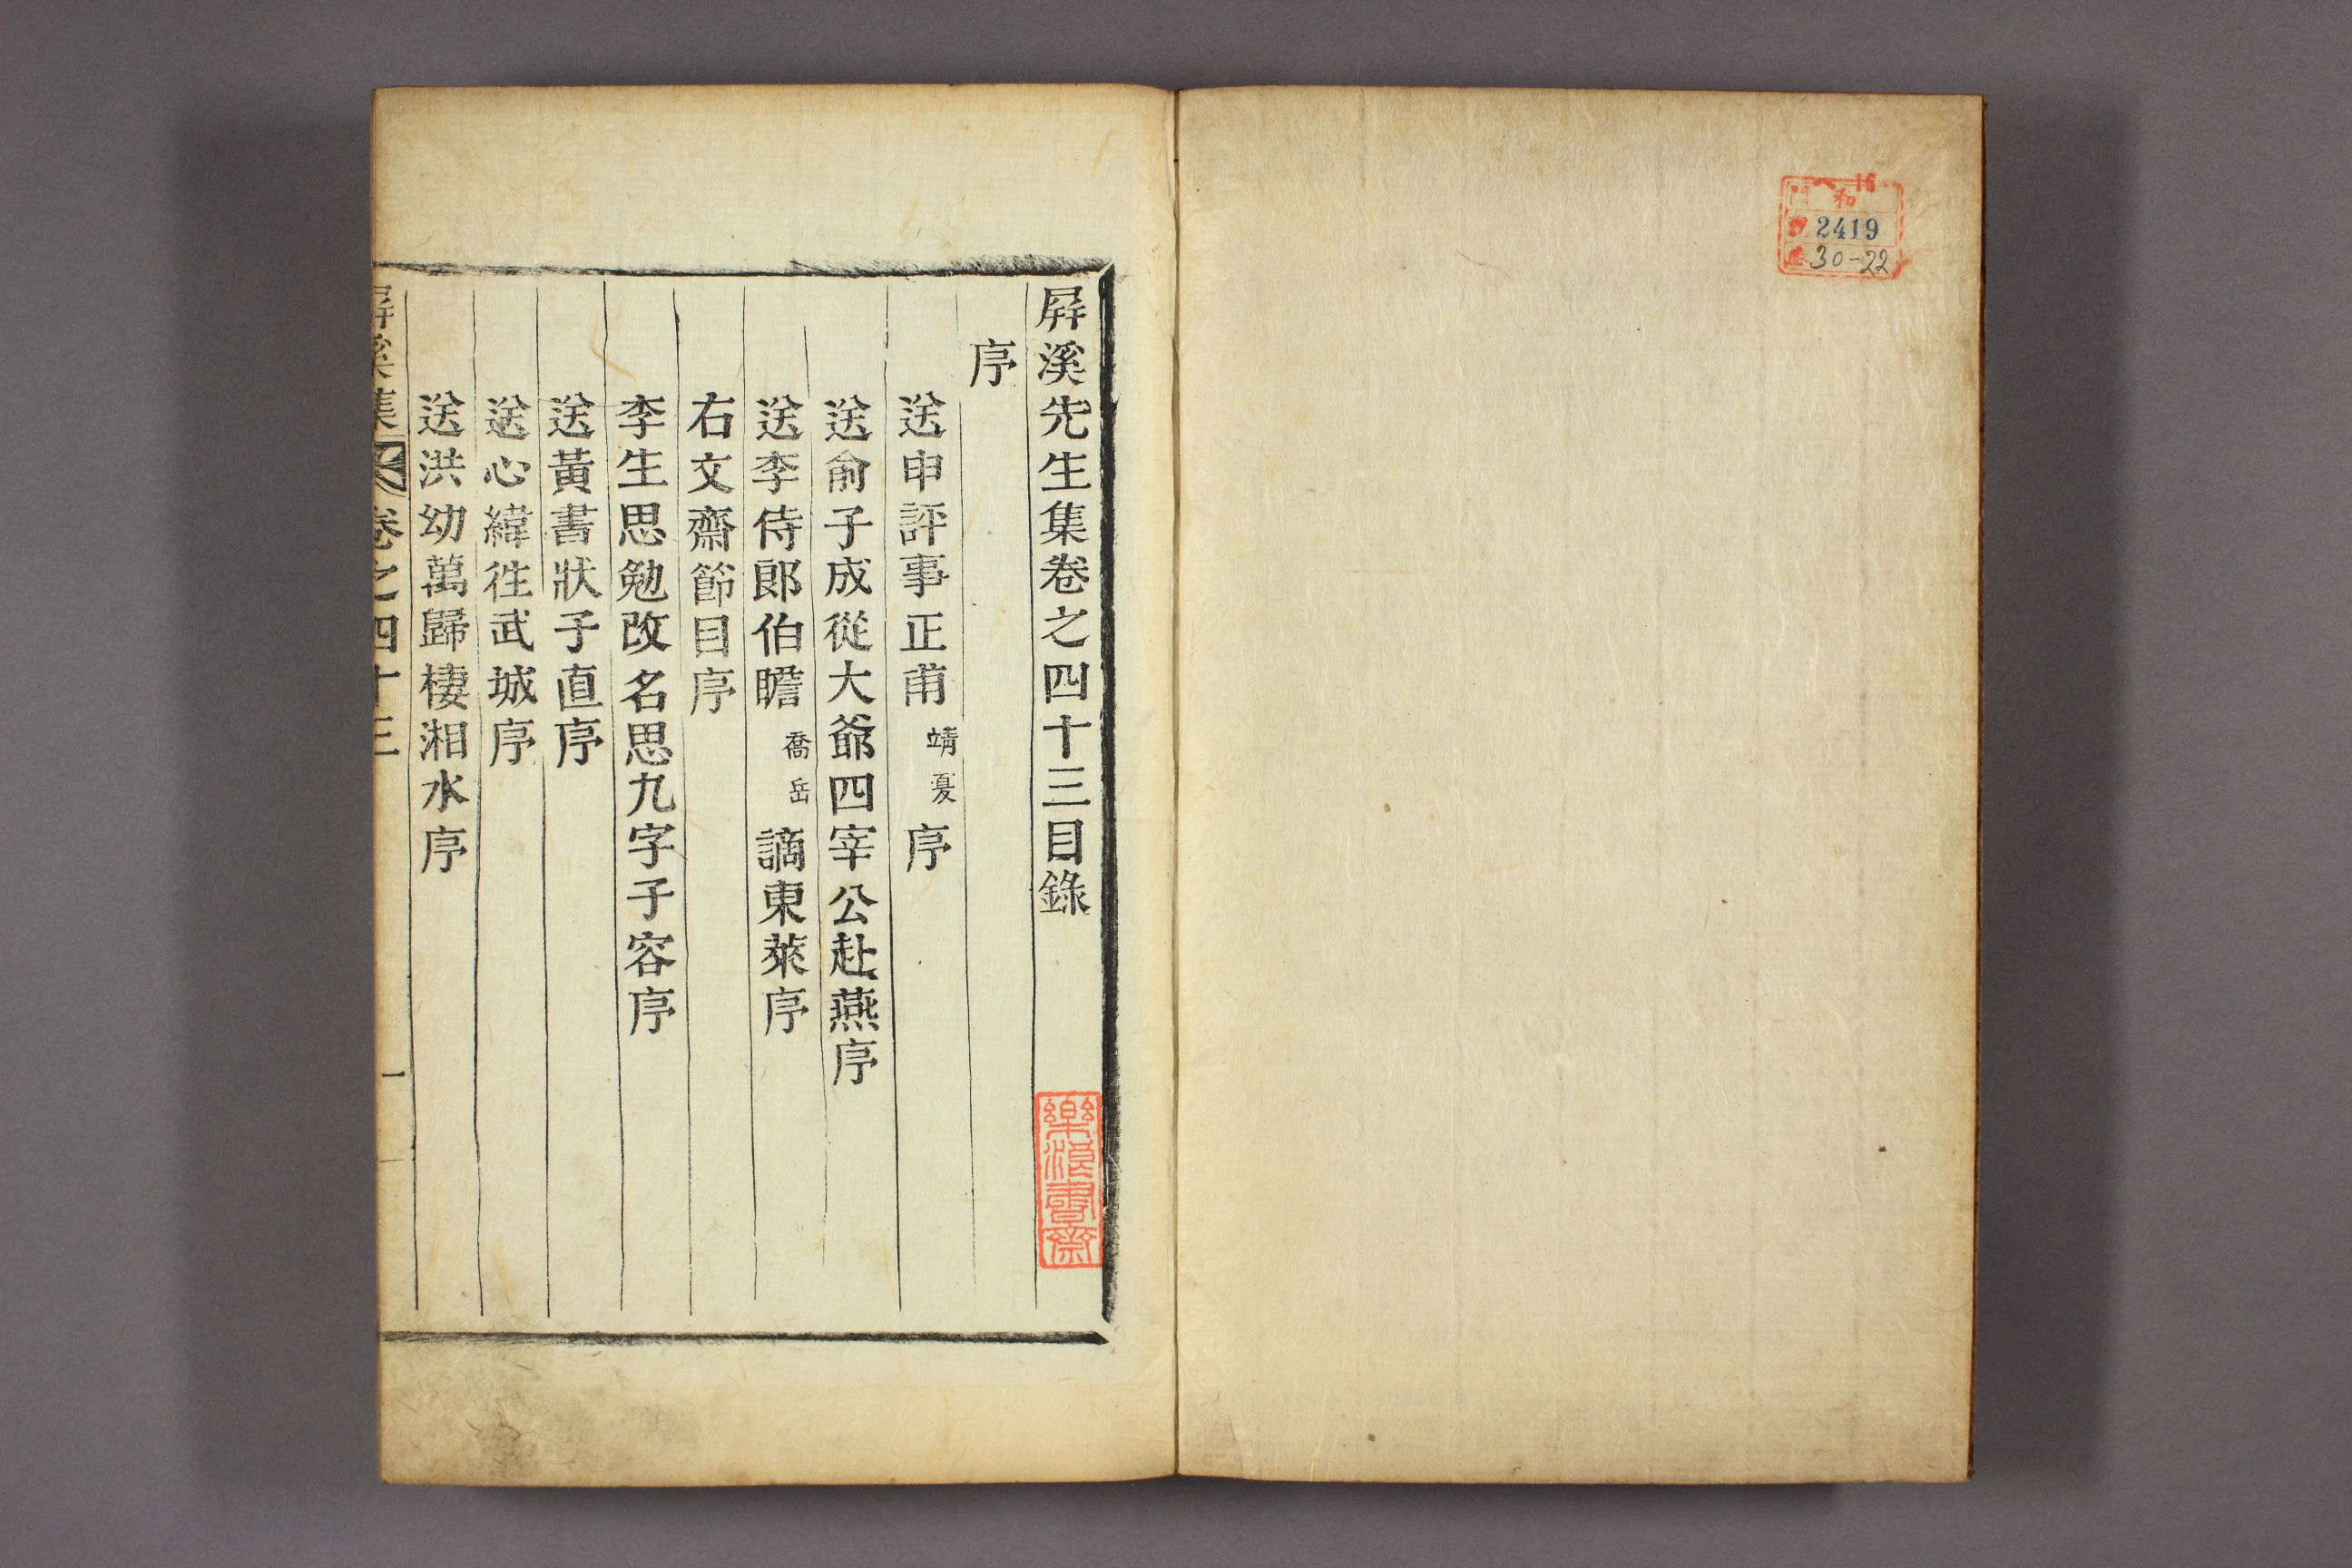 和
2419
30-22
屛溪先生集卷之四十三目錄
樂浪書齋
序
送申評事正甫靖夏序
送俞子成從大爺四宰公赴燕序
送李侍郞伯瞻喬岳謫東萊序
右文齋節目序
李生思勉改名思九字子容序
送黃書狀子直序
送心緯徃武城序
送洪幼萬歸棲湘水序
屛溪集 卷之四十三 一